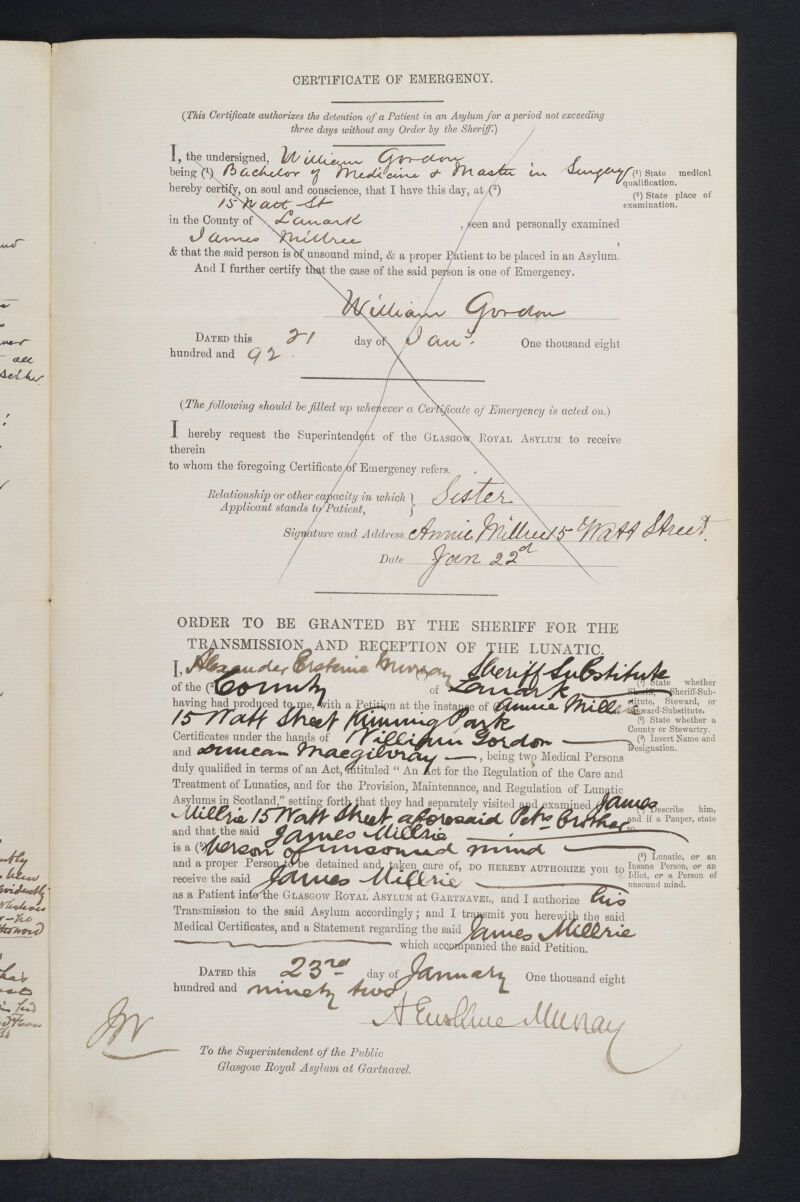 CERTIFICATE OF EMERGENCY.
(This Certificate authorizes the detention of a Patient in an Asylum for a period not exceeding
three days without any Order by the Sheriff.)
I, the undersigned, William Gordon
being (¹) Bachelor of Medicine & Master in Surgery
(¹) State medical
qualification.
hereby certify, on soul and conscience, that I have this day, at (²)
(²) State place of
examination.
15 Watt St
in the County of Lanark, seen and personally examined
James Millree,
& that the said person is of unsound mind, & a proper Patient to be placed in an Asylum.
And I further certify that the case of the said person is one of Emergency.
William Gordon
DATED this 21 day of Jany. One thousand eight
hundred and 92.
(The following should be filled up whenever a Certificate of Emergency is acted on.)
I hereby request the Superintendent of the GLASGOW ROYAL ASYLUM to receive
therein
to whom the foregoing Certificate of Emergency refers.
Relationship or other capacity in which } Sister
Applicant stands to Patient,
Signature and Address Annie Millree 15 Watt Street.
Date Jan 22d
ORDER TO BE GRANTED BY THE SHERIFF FOR THE
TRANSMISSION AND RECEPTION OF THE LUNATIC.
I, Alexander Erskine Murray Sheriff Substitute
of the (²) County of Lanark
(¹) State whether
Sheriff, Sheriff-Sub-
stitute, Steward, or
Steward-Substitute.
having had produced to me, with a Petition at the instance of Annie Millrie
15 Watt Street Kinning Park
(²) State whether a
County or Stewartry.
Certificates under the hands of William Gordon
(³) Insert Name and
Designation.
and Duncan Macgilvray, being two Medical Persons
duly qualified in terms of an Act, intituled "An Act for the Regulation of the Care and
Treatment of Lunatics, and for the Provision, Maintenance, and Regulation of Lunatic
Asylums in Scotland," setting forth that they had separately visited and examined James
Millrie 15 Watt Street aforesaid Petrs brother
Describe him,
and if a Pauper, state
so.
and that the said James Millrie
is a (⁵) person of unsound mind
(⁵) Lunatic, or an
Insane Person, or an
Idiot, or a Person of
unsound mind.
and a proper Person to be detained and taken care of, DO HEREBY AUTHORIZE you to
receive the said James Millrie
as a Patient into the GLASGOW ROYAL ASYLUM AT GARTNAVEL, and I authorize his
Transmission to the said Asylum accordingly; and I transmit you herewith the said
Medical Certificates, and a Statement regarding the said James Millrie
which accompanied the said Petition.
DATED this 23rd day of January One thousand eight
hundred and ninety two
A Erskine Murray
To the Superintendent of the Public
Glasgow Royal Asylum at Gartnavel.